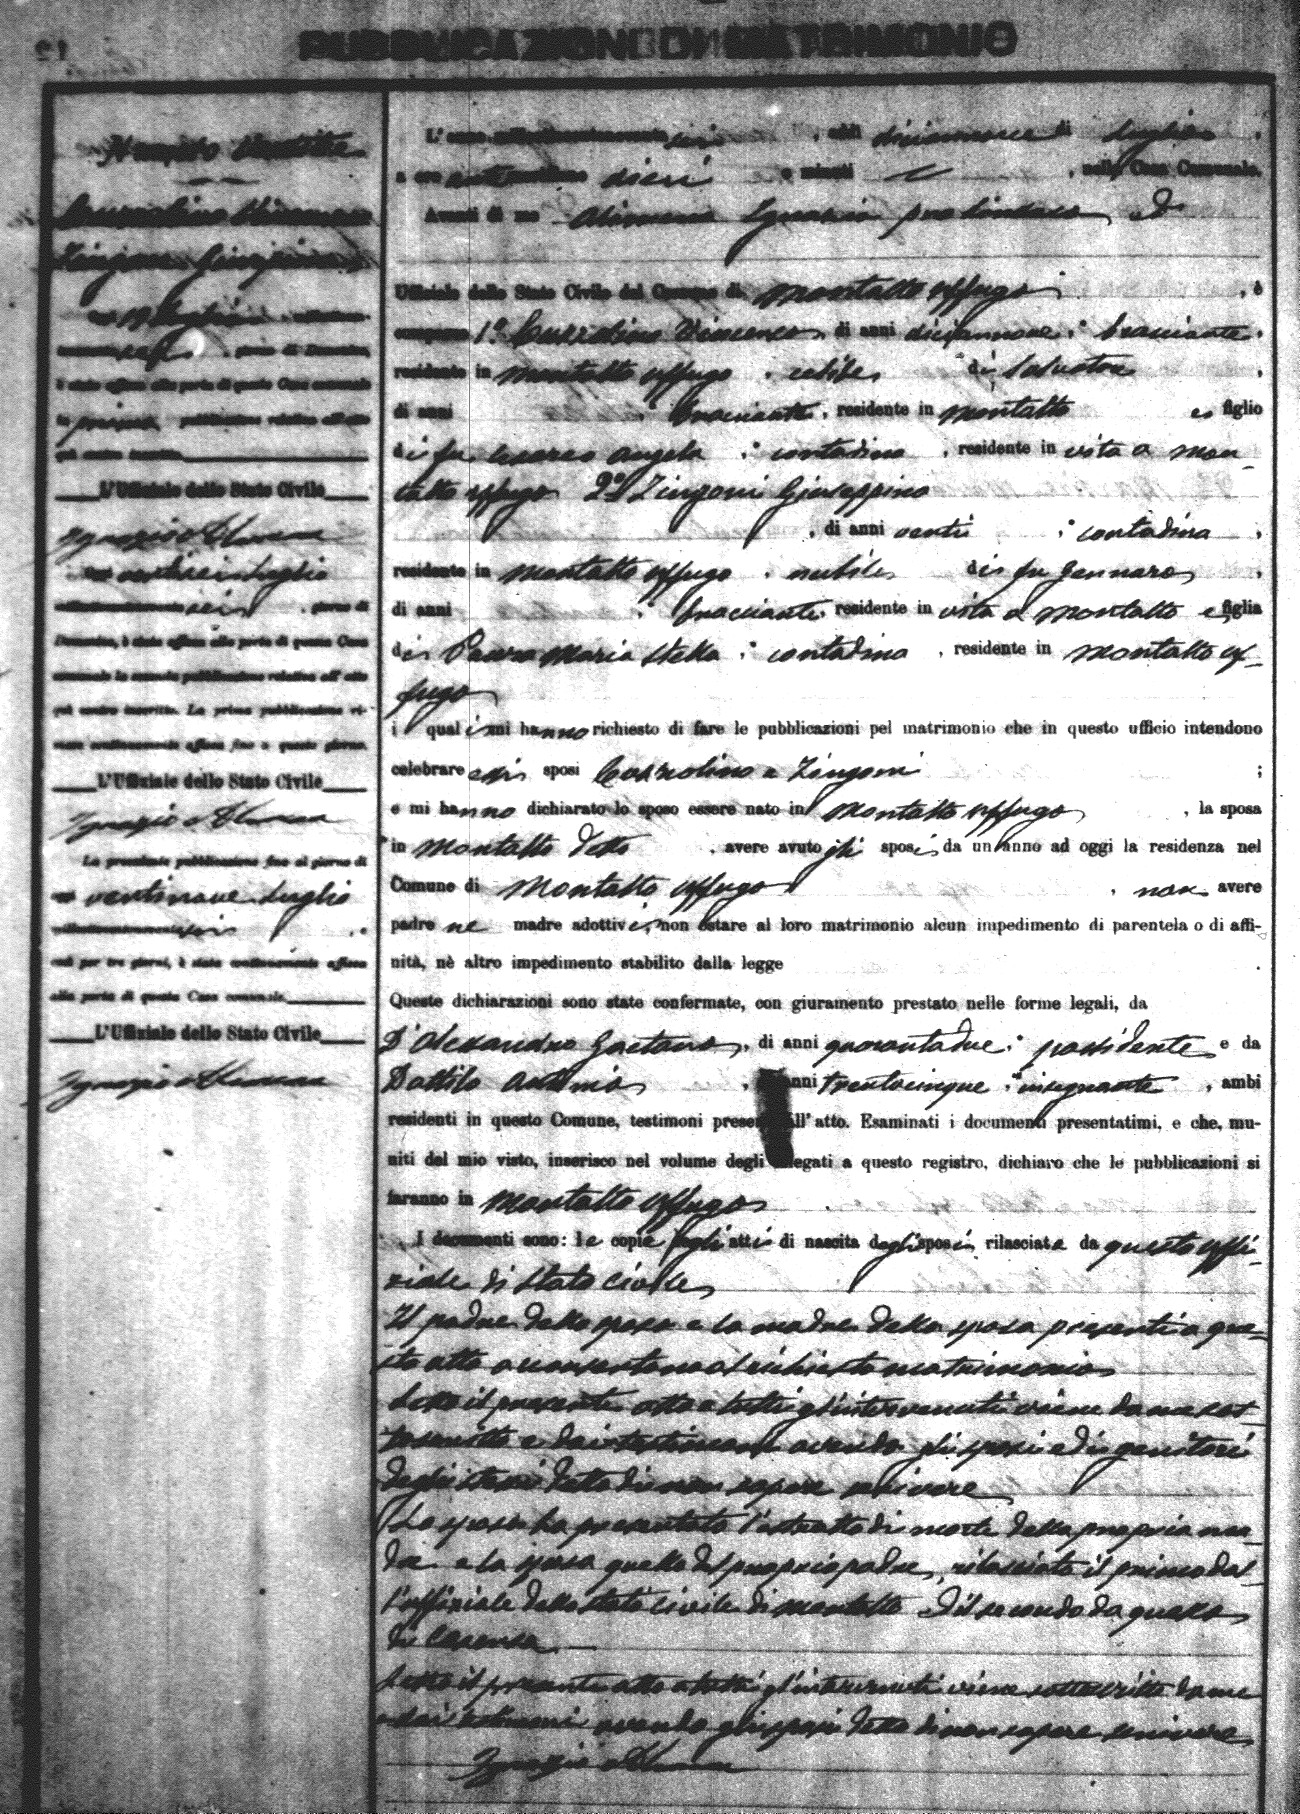 PUBBLICAZIONE DI MATRIMONIO
Numero
Cozzolino Vincenzo
Zingoni Giuseppina
giorno di Domenica,
è stata affissa alla porta di questa Casa comunale
la prima pubblicazione relativa all'atto
qui contro inscritto
L'Uffiziale dello Stato Civile
Ignazio Alimena
Oggi ventisei Luglio
sei, giorno di
Domenica, è stata affissa alla porta di questa Casa
comunale la seconda pubblicazione relativa all'atto
qui contro inscritto. La prima pubblicazione ri-
mase continuamente affissa fino a questo giorno.
L'Uffiziale dello Stato Civile
Ignazio Alimena
La presente pubblicazione fino al giorno di
oggi ventinove Luglio
sei, e
cioè per tre giorni, è stata continuamente affissa
alla porta di questa Casa comunale.
L'Uffiziale dello Stato Civile
Ignazio Alimena
L'anno sei, addì diciannove di Luglio,
a ore antimeridiane dieci e minuti, nella Casa Comunale.
Avanti di me Alimena Ignazio
Uffiziale dello Stato Civile del Comune di Montalto Uffugo, è
comparso 1.º Cozzolino Vincenzo, di anni diciannove, bracciante,
residente in Montalto Uffugo, celibe, di Salvatore,
di anni, bracciante, residente in Montalto e figlio
di fu Angela, contadina, residente in vita a Mon-
talto Uffugo 2º Zingoni Giuseppina
, di anni venti, contadina,
residente in Montalto Uffugo, nubile, di fu Gennaro,
di anni, bracciante, residente in vita a Montalto e figlia
di Maria Stella, contadina, residente in Montalto Uf-
fugo
i quali mi hanno richiesto di fare le pubblicazioni pel matrimonio che in questo ufficio intendono
celebrare essi sposi Cozzolino e Zingoni;
e mi hanno dichiarato lo sposo essere nato in Montalto Uffugo, la sposa
in Montalto detto, avere avuto gli sposi da un anno ad oggi la residenza nel
Comune di Montalto Uffugo, non avere
padre ne madre adottivi, non ostare al loro matrimonio alcun impedimento di parentela o di affi-
nità, nè altro impedimento stabilito dalla legge.
Queste dichiarazioni sono state confermate, con giuramento prestato nelle forme legali, da
D'Alessandro Gaetano, di anni quarantadue, possidente e da
Dattilo Antonio, anni trentacinque, insegnante, ambi
residenti in questo Comune, testimoni presenti all'atto. Esaminati i documenti presentatimi, e che, mu-
niti del mio visto, inserisco nel volume degli allegati a questo registro, dichiaro che le pubblicazioni si
faranno in Montalto Uffugo
I documenti sono: le copie degli atti di nascita degli sposi, rilasciate da questo uffi-
ziale di stato civile
Il padre dello sposo e la madre della sposa presenti a que-
sto atto acconsentono al richiesto matrimonio
Letto il presente atto a tutti gl'intervenuti viene da me sot-
toscritto e dai testimoni avendo gli sposi ed i genitori
degli stessi detto di non sapere scrivere
Lo sposo ha presentato l'estratto di morte della propria ma-
dre e la sposa quello del proprio padre, rilasciato il primo dal-
l'uffiziale dello stato civile di Montalto ed il secondo da quello
di Cosenza
Letto il presente atto a tutti gl'intervenuti viene sottoscritto da me
e dai testimoni avendo gli sposi detto di non sapere scrivere
Ignazio Alimena